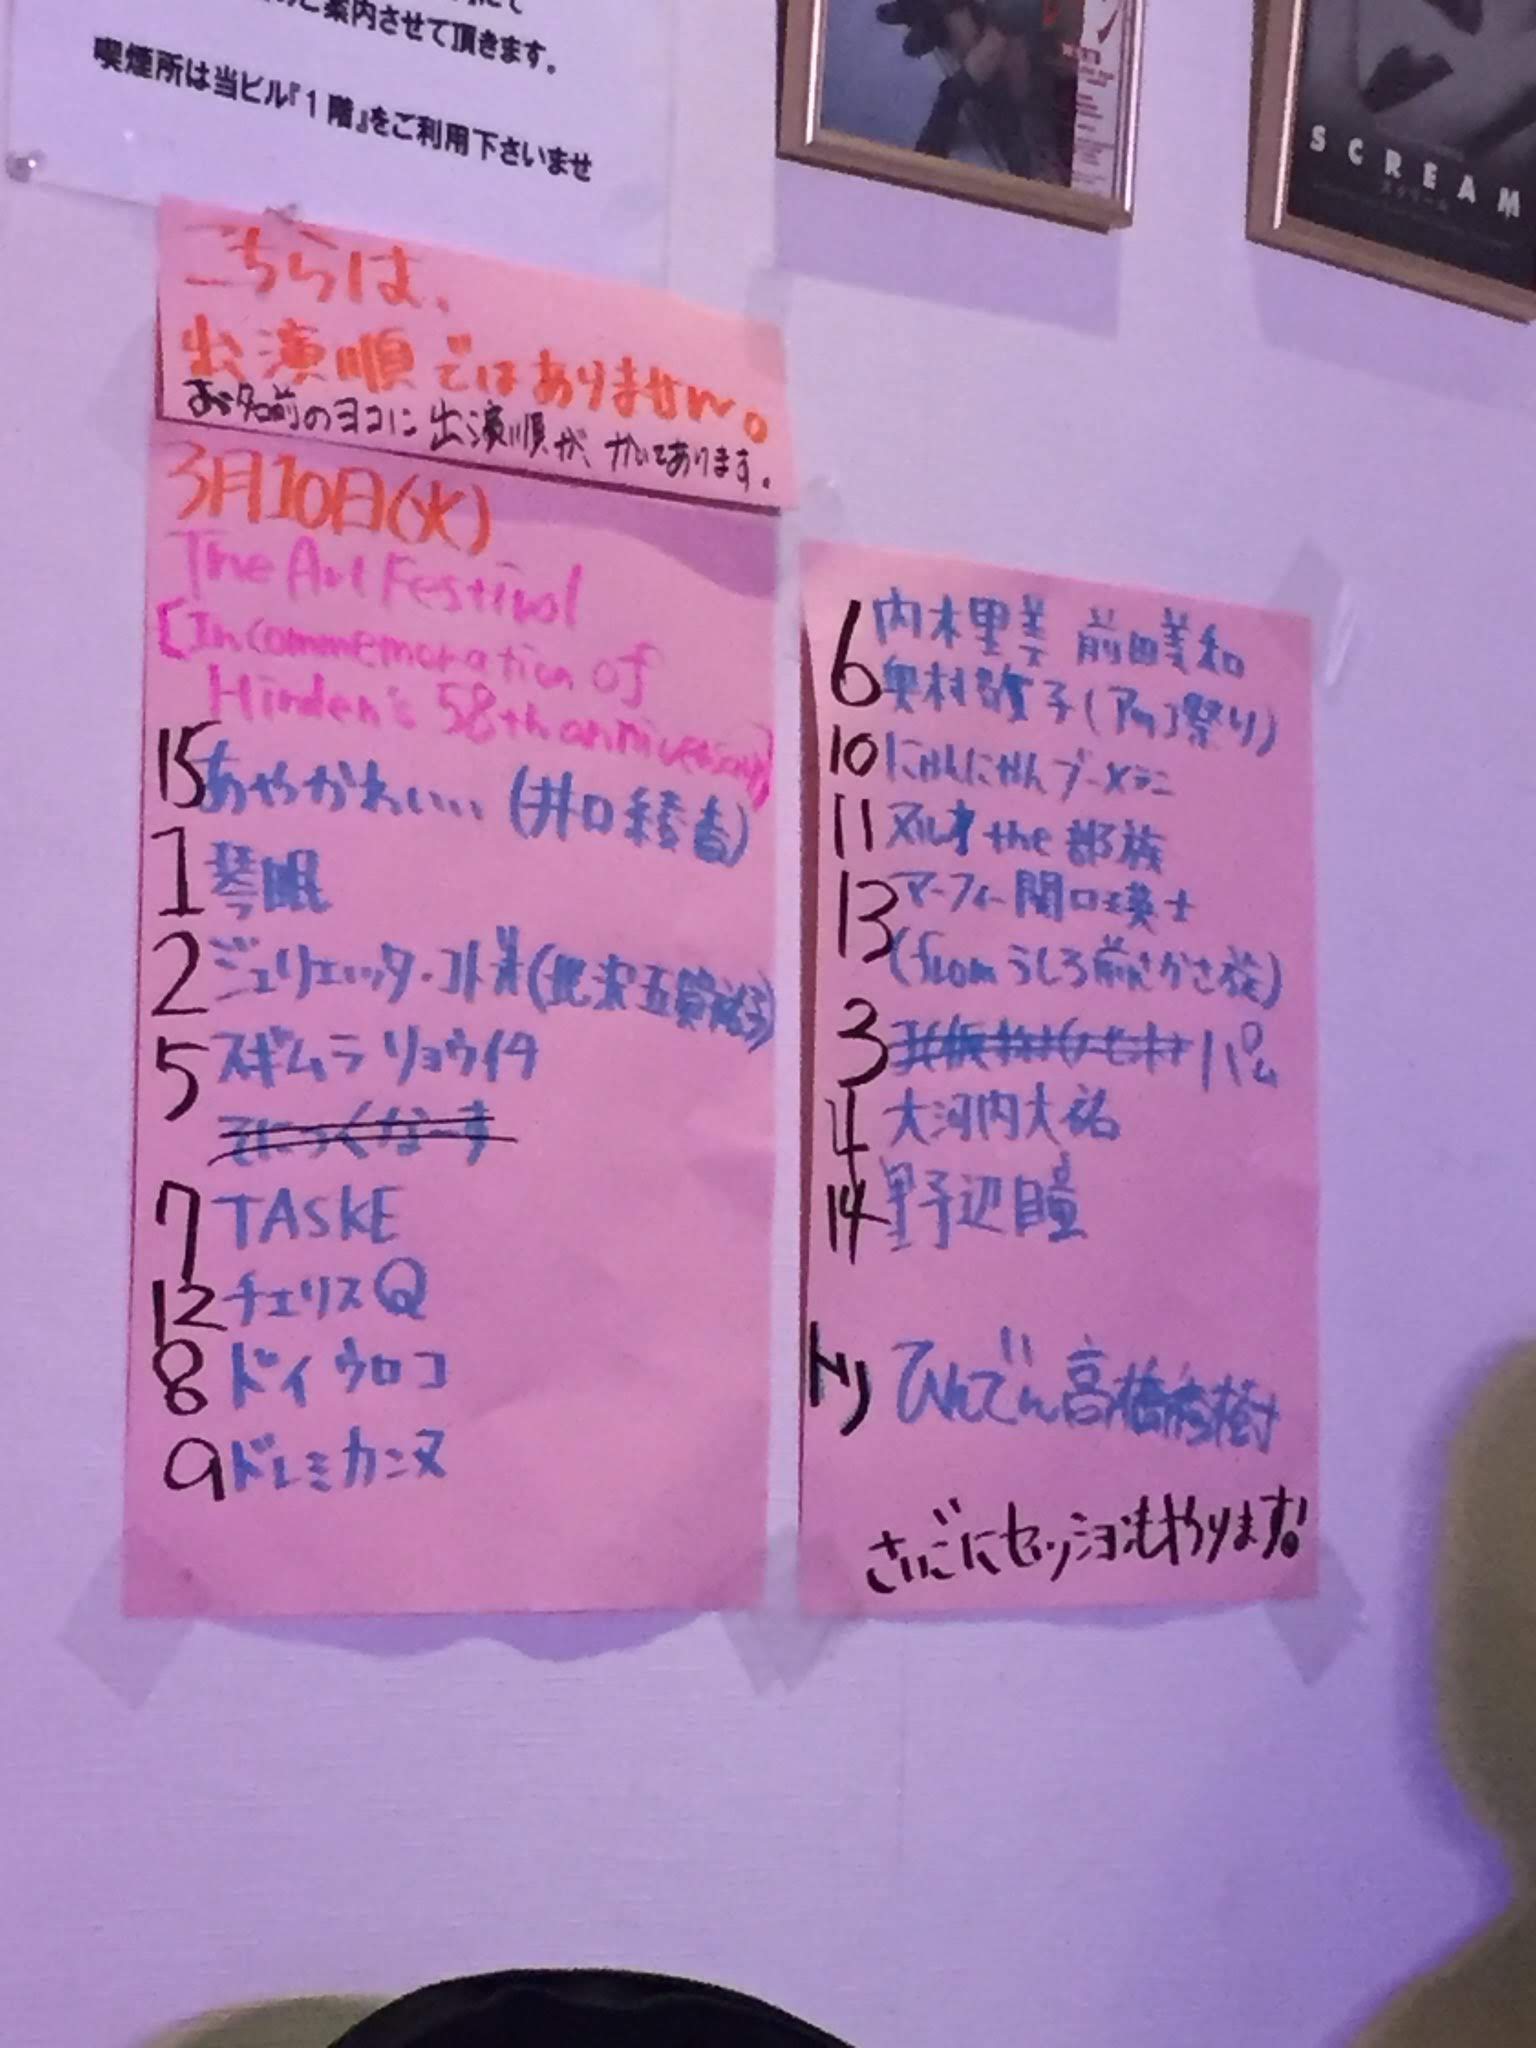 ご案内させて頂きます。
喫煙所は当ビル『1階』をご利用下さいませ
SCREAM
スクリーム
こちらは、
出演順ではありません。
お名前のヨコに出演順が、かいてあります。
3月10日(火)
The Art Festival
[In commemoration of
Hinden's 58th anniversary]
15 あやかわいい (井口綾香)
1 琴眠
2 ジュリエッタ・コト美(北宋五箇
5 スギムラ リョウイチ
てにっくなーす
7 TASKE
12 チェリスQ
8 ドイ ウロコ
9 ドレミカニヌ
6 内木里美 前田美和
6 奥村敦子(アッコ祭り)
10 にゃんにゃんブーメラニ
11 ヌルオ the 部族
13 マーフィー関口英士
(from うしろ前さかさ族)
3 パム
4 大河内大祐
14 野子辺瞳
トリ ひんでん高橋秀樹
さいごにセッションもやります!